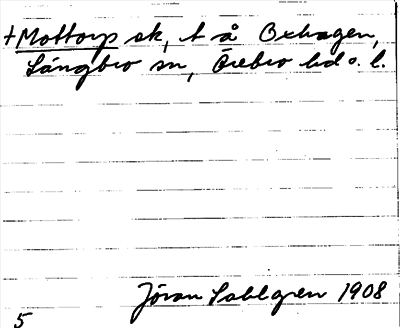 +Mottorp sk, t å Oxhagen,
Långbro sn, Örebro hd o. l.
Jöran Sahlgren 1908
5